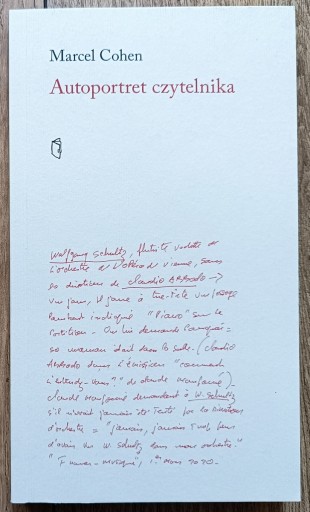 Marcel Cohen
Autoportret czytelnika
Wolfgang Schultz, flûtiste vedette de
l'orchestre de l'Opéra de Vienne, sous
la direction de Claudio Abbado
un jour, il joue à tue-tête un passage
pourtant indiqué "Piano" sur la
partition. On lui demande pourquoi =
sa maman était dans la salle. (Claudio
Abbado dans l'émission "comment
l'entendez-vous?" de Claude Maupomé)
Claude Maupomé demandant à W. Schultz
s'il n'avait jamais été tenté par la direction
d'orchestre = "jamais, jamais
d'avoir un W. Schultz dans mon orchestre."
"France-Musique", 1er Mars 2020.